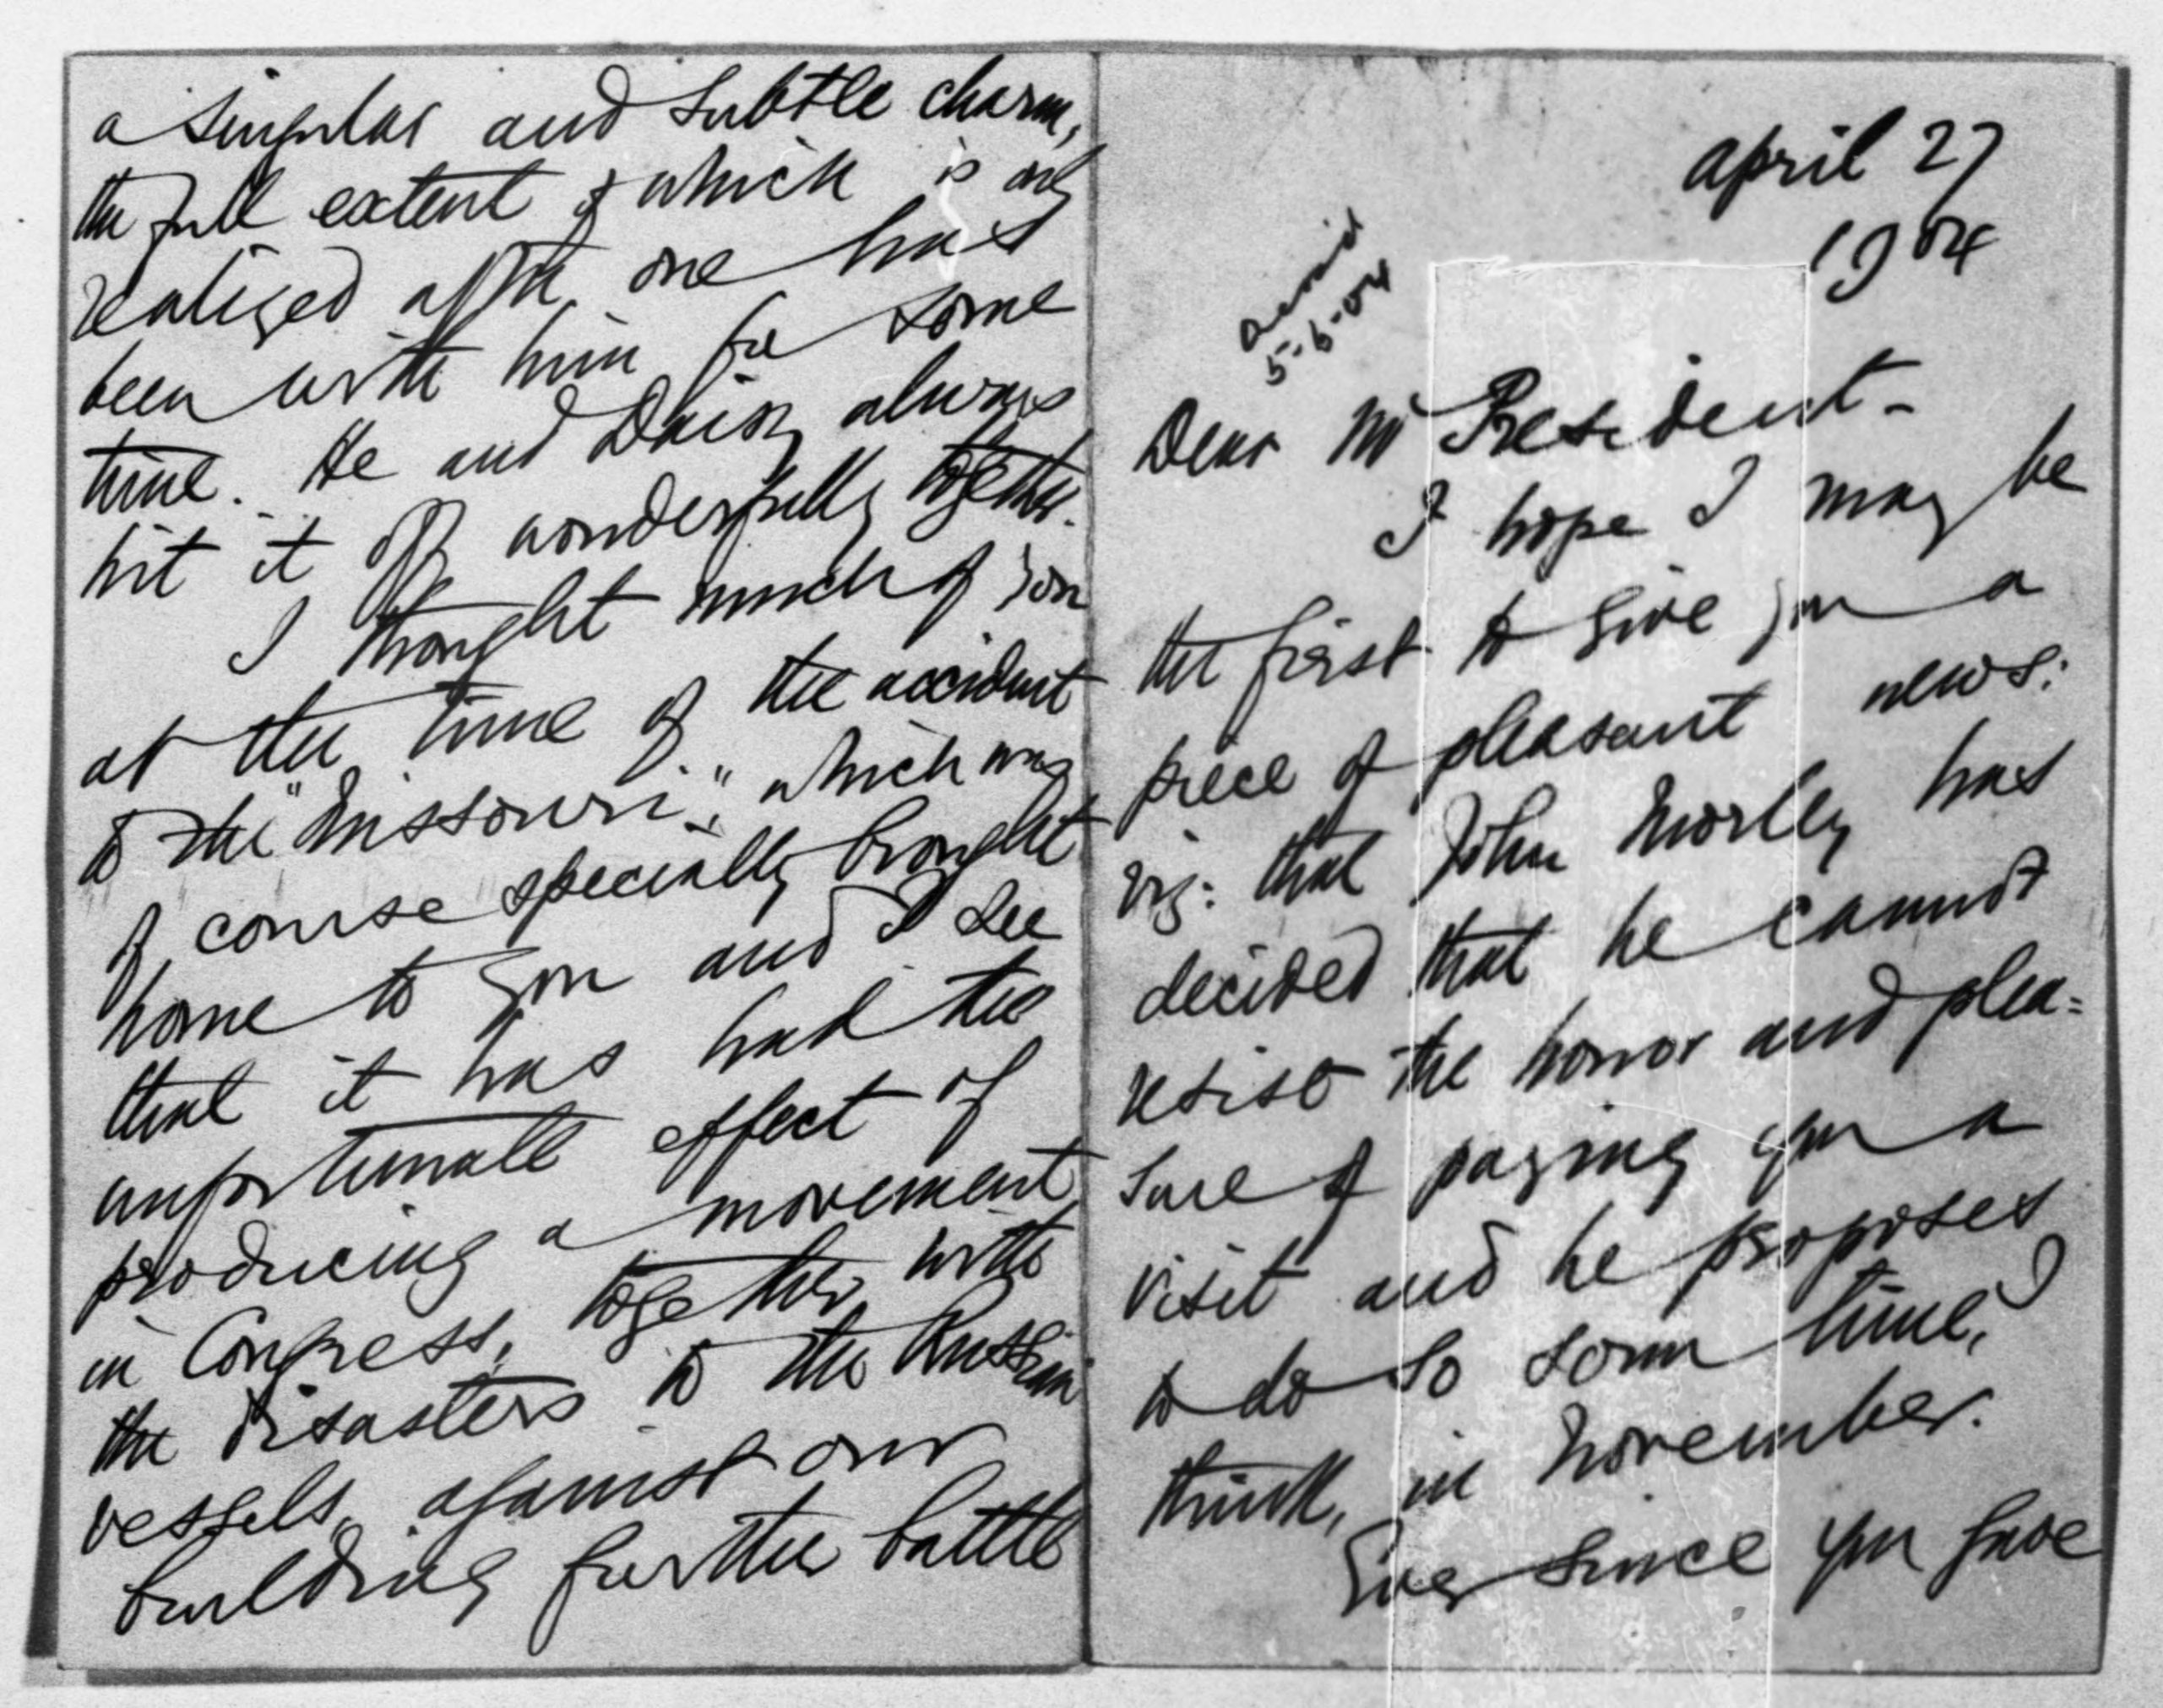 a singular and subtle charm,
the full extent of which is only
realized after one has
been with him for some
time. He and Daisy always
hit it off wonderfully together.
I thought much of you
at the time of the accident
to the "Missouri", which was
of course specially brought
home to you and I see
that it has had the
unfortunate effect of
producing a movement
in Congress, together with
the disasters to the Russian
vessels, against our
building further battle
april 27
1904
ackd
5-6-04
Dear Mr President -
I hope I may be
the first to give you a
piece of pleasant news:
viz: that John Morley has
decided that he cannot
resist the honor and plea=
sure of paying you a
visit and he proposes
to do so some time, I
think, in November.
Ever since you gave